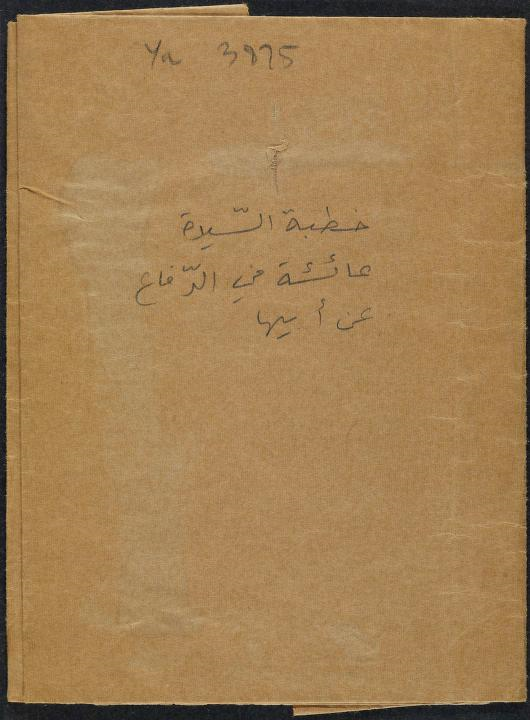 Ya 3975
٢
خطبة السّيدة
عائشة في الدّفاع
عن أبيها